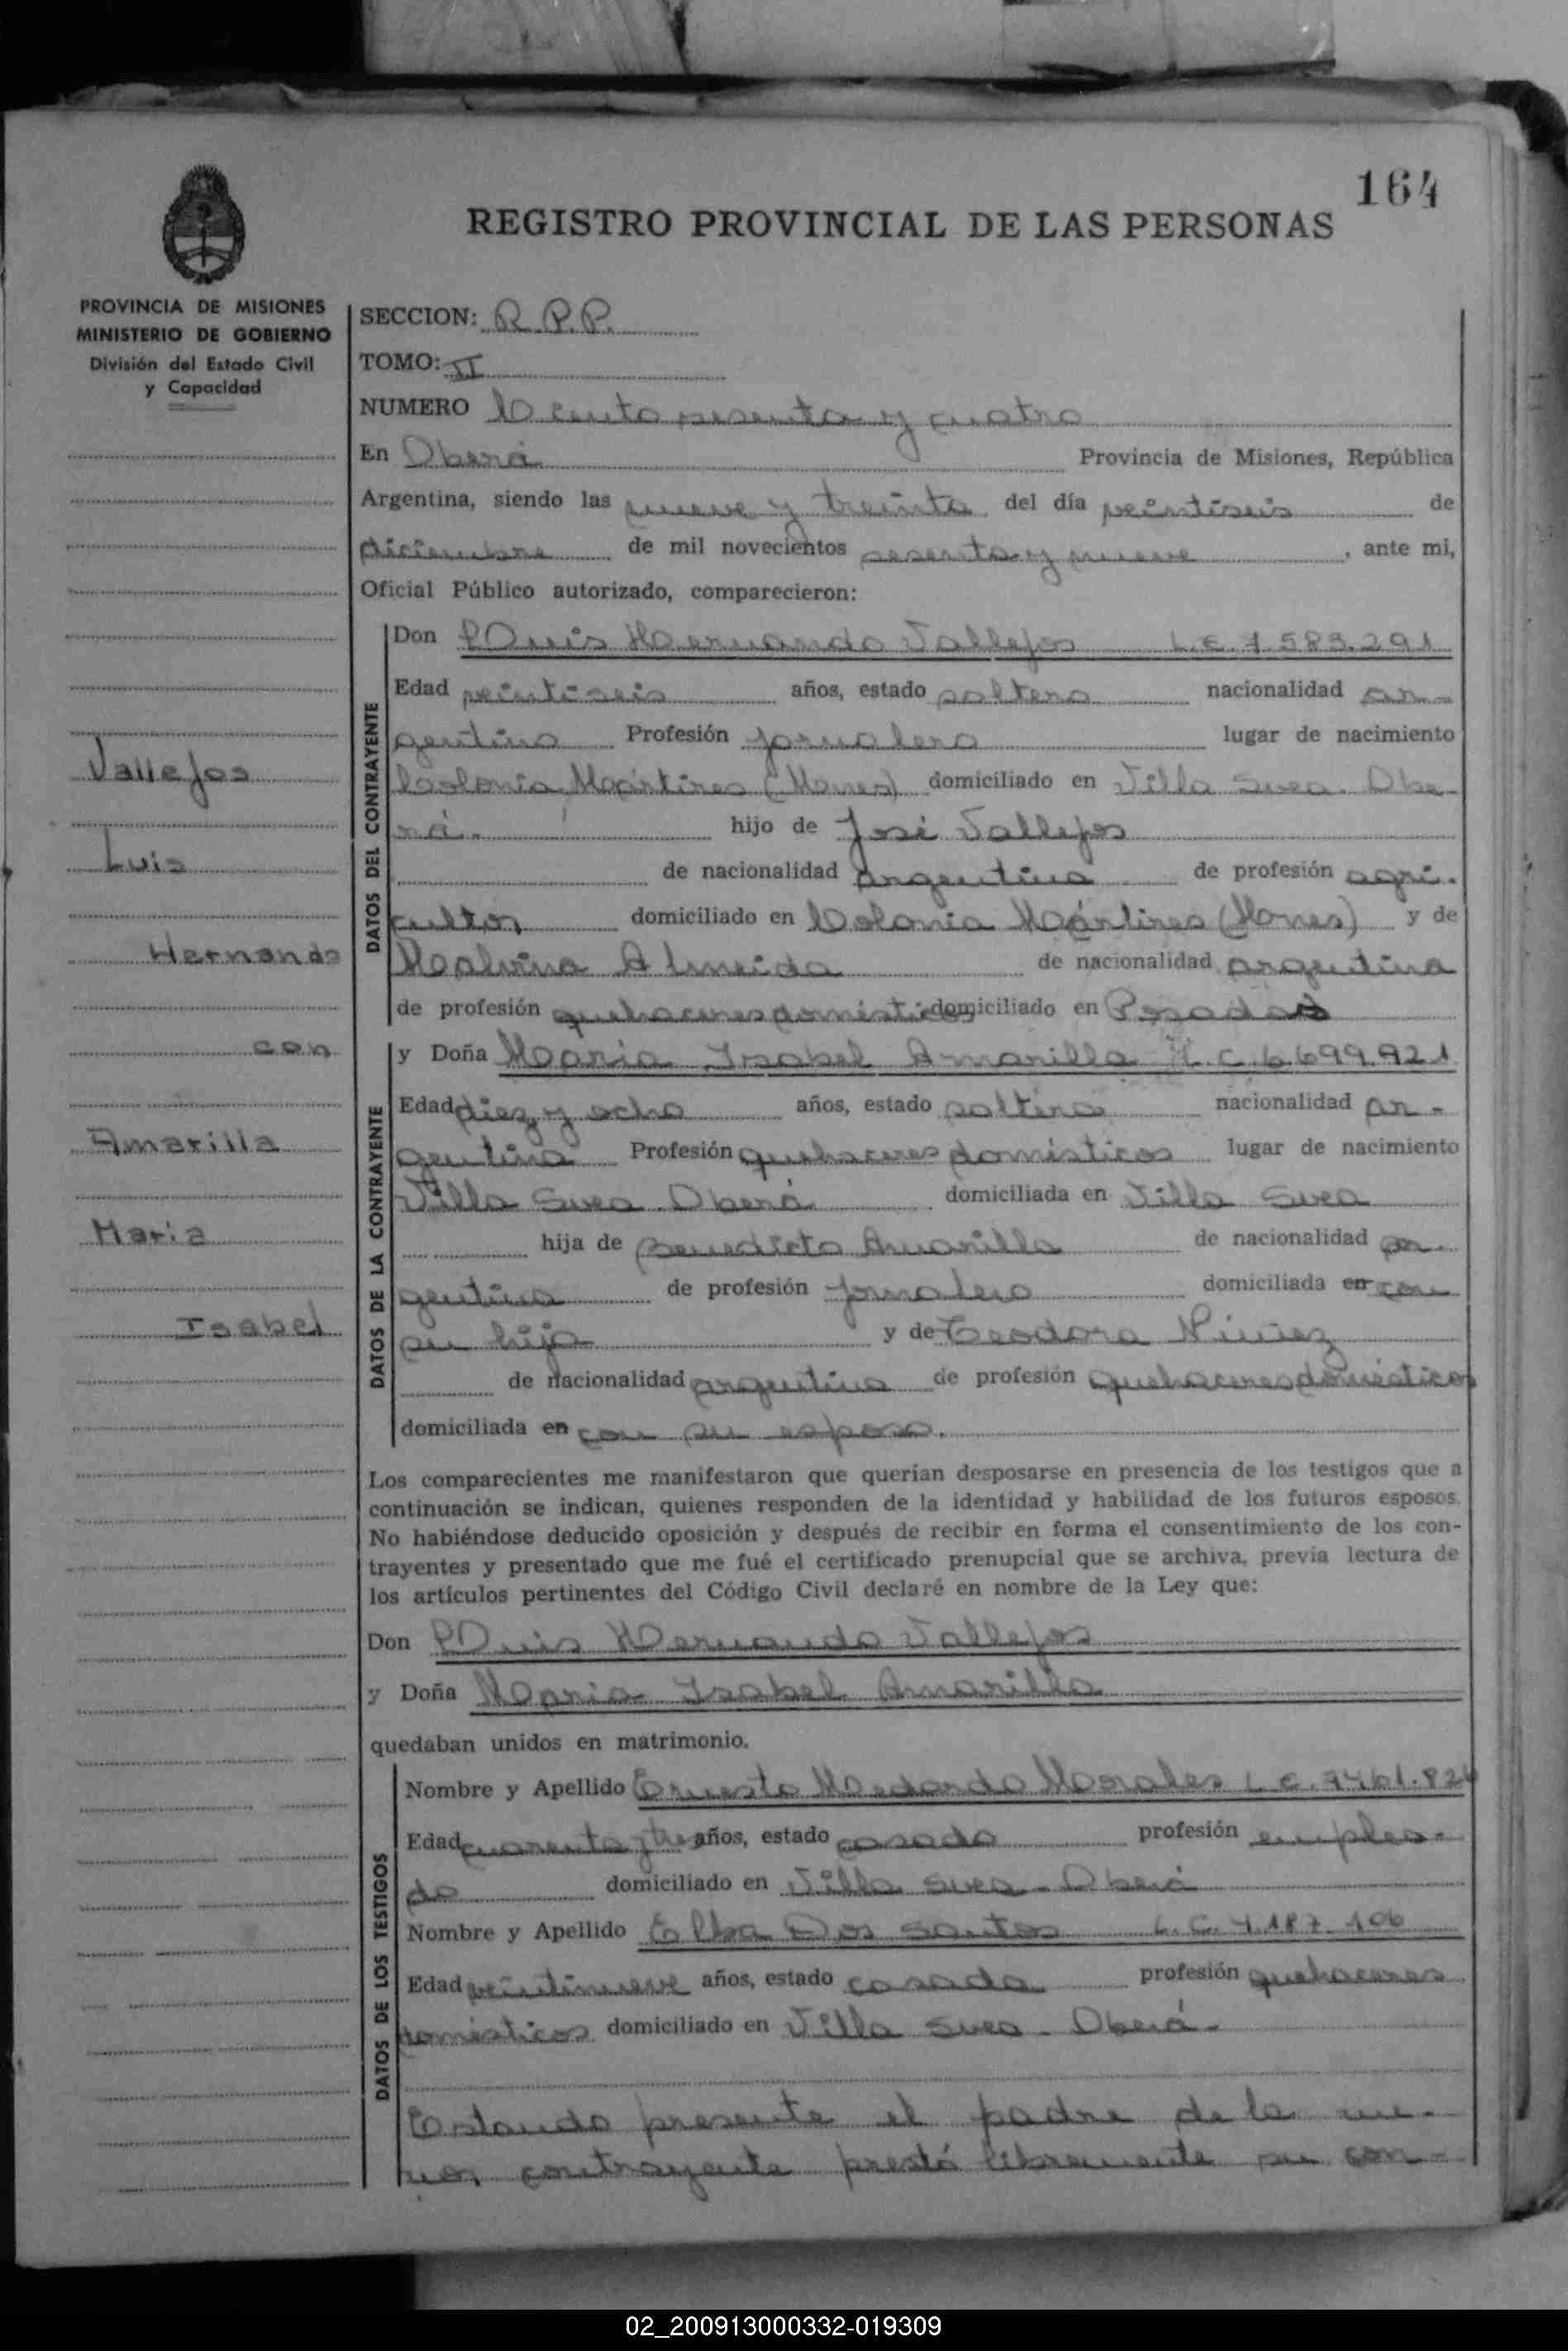 164
REGISTRO PROVINCIAL DE LAS PERSONAS
PROVINCIA DE MISIONES
MINISTERIO DE GOBIERNO
División del Estado Civil
y Capacidad
Vallejos
Luis
Hernando
con
Amarilla
María
Isabel
SECCION: R.P.P.
TOMO: II
NUMERO Ciento sesenta y cuatro
En Oberá Provincia de Misiones, República
Argentina, siendo las nueve y treinta del día veintiseis de
diciembre de mil novecientos sesenta y nueve, ante mi,
Oficial Público autorizado, comparecieron:
DATOS DEL CONTRAYENTE
Don Luis Hernando Vallejos L.E. 7.583.291
Edad veintiseis años, estado soltero nacionalidad ar-
gentino Profesión jornalero lugar de nacimiento
Colonia Mártires (Mnes) domiciliado en Villa Svea. Obe-
rá. hijo de José Vallejos
de nacionalidad argentino de profesión agri-
cultor domiciliado en Colonia Mártires (Mnes) y de
Malvina Almeida de nacionalidad argentina
de profesión quehaceres domésticos domiciliado en Posadas
DATOS DE LA CONTRAYENTE
y Doña María Isabel Amarilla L.C. 6.699.921
Edad diez y ocho años, estado soltera nacionalidad ar-
gentina Profesión quehaceres domésticos lugar de nacimiento
Villa Svea Oberá domiciliada en Villa Svea
hija de Benedicto Amarilla de nacionalidad ar-
gentino de profesión jornalero domiciliada en con
su hija y de Teodora Núñez
de nacionalidad argentina de profesión quehaceres domésticos
domiciliada en con su esposo.
Los comparecientes me manifestaron que querían desposarse en presencia de los testigos que a
continuación se indican, quienes responden de la identidad y habilidad de los futuros esposos.
No habiéndose deducido oposición y después de recibir en forma el consentimiento de los con-
trayentes y presentado que me fué el certificado prenupcial que se archiva, previa lectura de
los artículos pertinentes del Código Civil declaré en nombre de la Ley que:
Don Luis Hernando Vallejos
y Doña María Isabel Amarilla
quedaban unidos en matrimonio.
DATOS DE LOS TESTIGOS
Nombre y Apellido Ernesto Medardo Morales L.E.
Edad cuarenta y tres años, estado casado profesión emplea-
do domiciliado en Villa Svea - Oberá
Nombre y Apellido Elba Dos Santos L.C. 4.187.106
Edad veintinueve años, estado casada profesión quehaceres
domésticos domiciliado en Villa Svea - Oberá -
Estando presente el padre de la me-
nor contrayente prestó libremente su con-
02_200913000332-019309